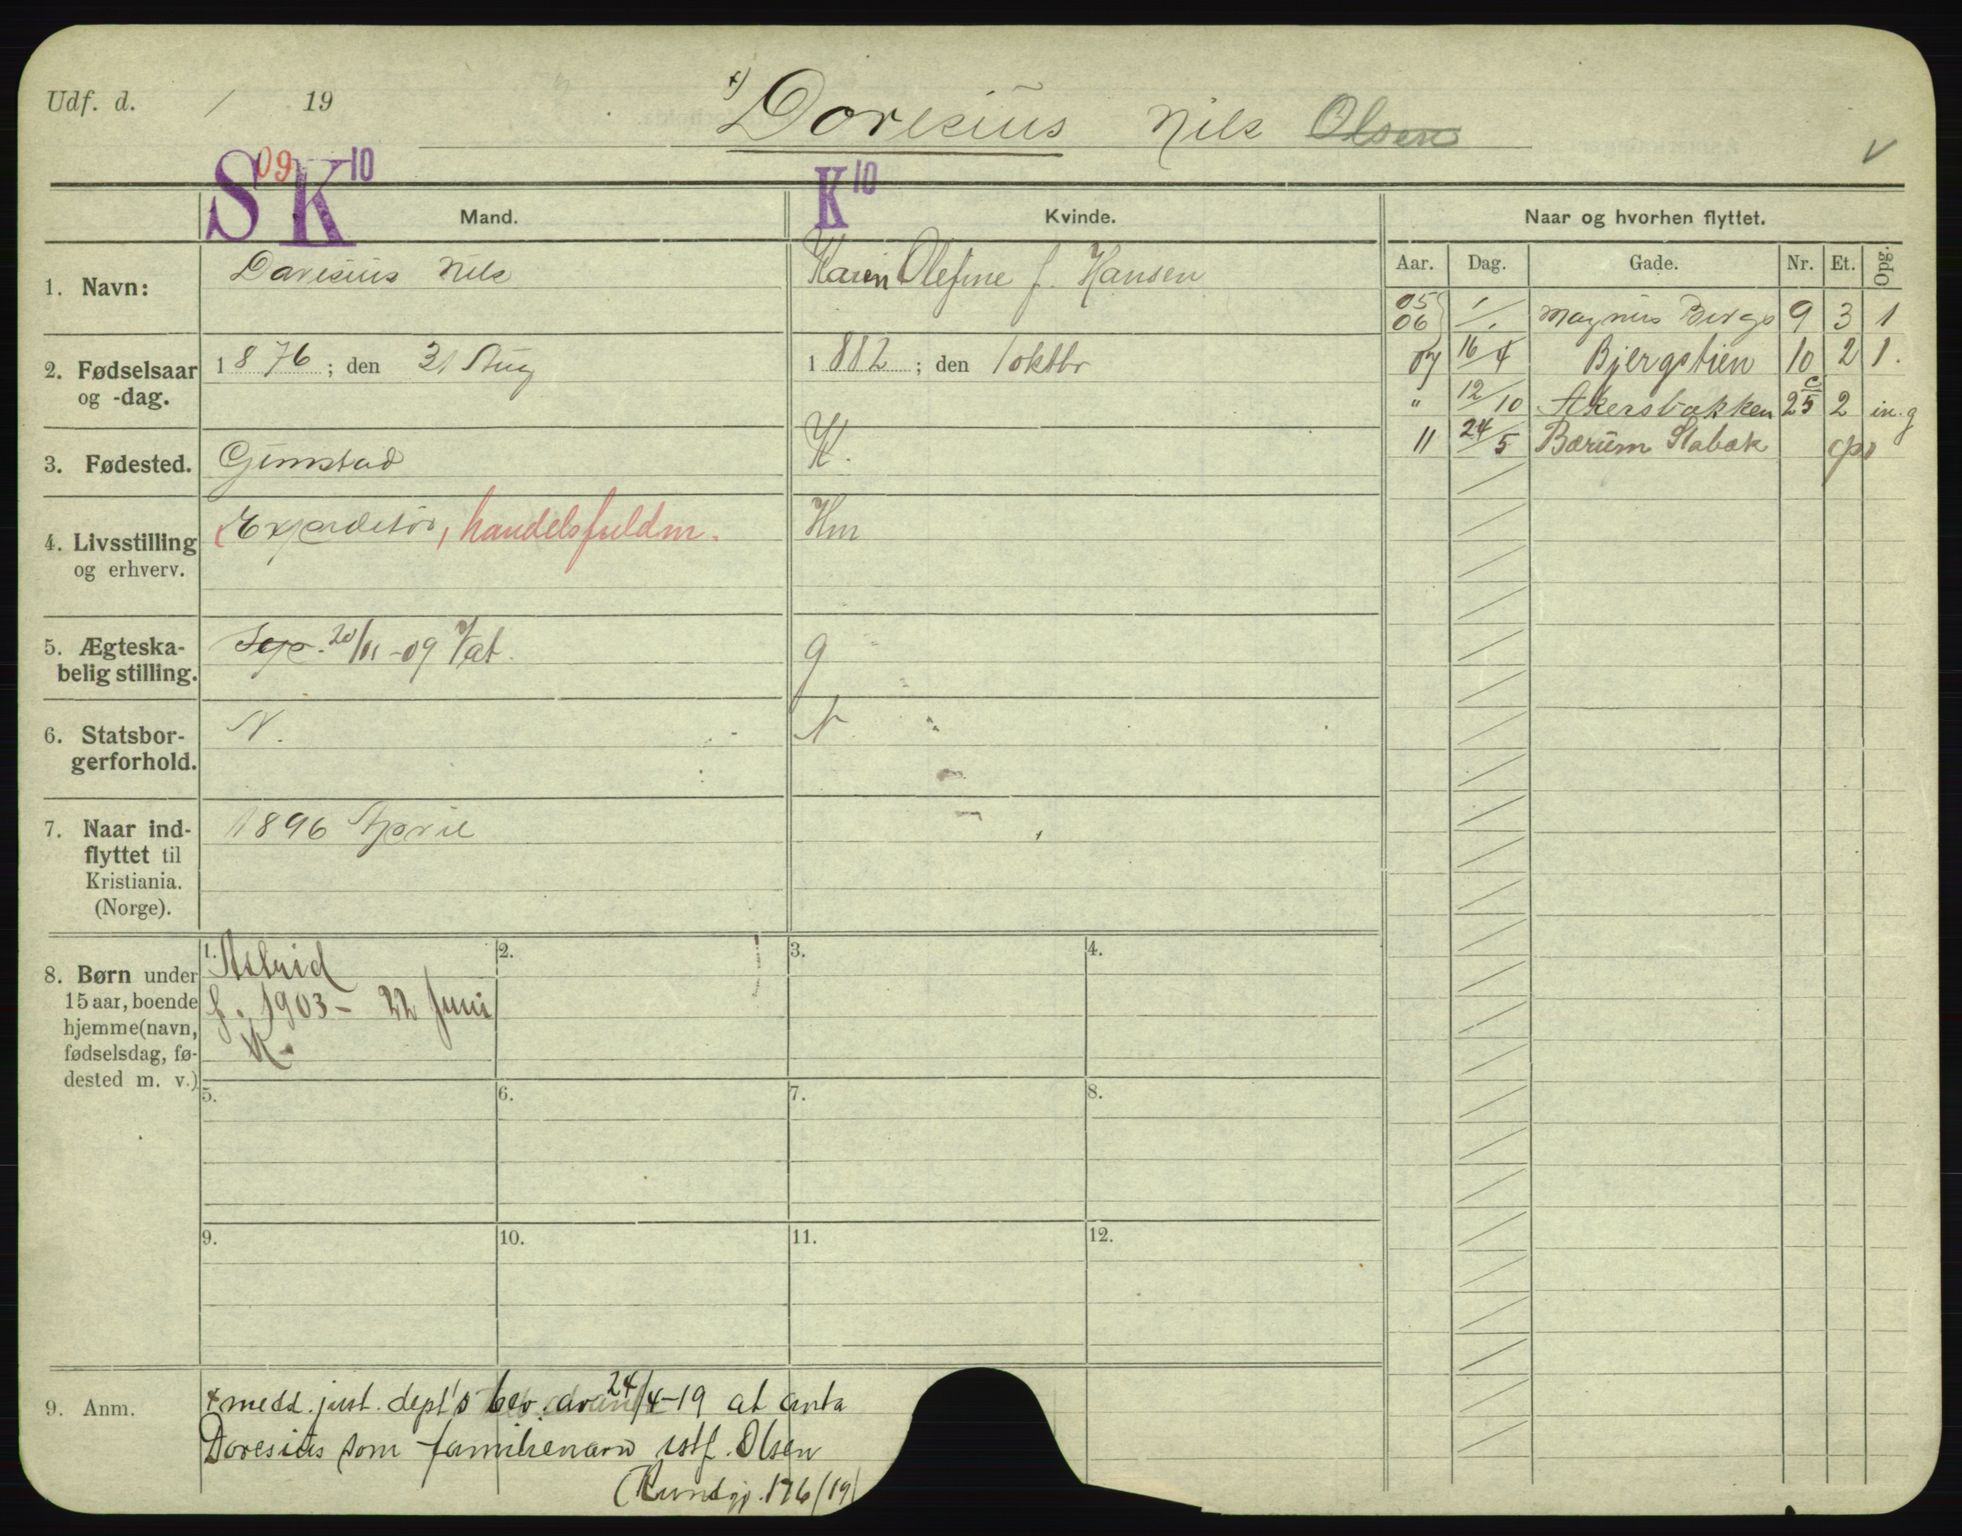 Udf. d. / 19
x) Doresius Nils Olsen
V
S 09 K 10
K 10
Mand.
Kvinde.
Naar og hvorhen flyttet.
Aar. Dag. Gade. Nr. Et. Opg.
1. Navn:
Doresius Nils
Karen Olefine f. Hansen
2. Fødselsaar
og -dag.
1876; den 31 Aug
1882; den 1 oktbr
3. Fødested.
Grimstad
K.
4. Livsstilling
og erhverv.
(Expeditør, handelsfuldm.
Hm
5. Ægteska-
belig stilling.
Sep. 20/11-09 Kat.
g
6. Statsbor-
gerforhold.
N.
N
7. Naar ind-
flyttet til
Kristiania.
(Norge).
1896 April
05
06 / Magnus Bergs 9 3 1
07 16/4 Bjergstien 10 2 1.
" 12/10 Akersbakken 25 c 2 in.g
11 24/5 Bærum Stabæk
8. Børn under
15 aar, boende
hjemme (navn,
fødselsdag, fø-
dested m. v.)
1. Astrid
f. 1903 - 22 Juni
K -
2.
3.
4.
5.
6.
7.
8.
9.
10.
11.
12.
9. Anm.
x medd. just. dept's bev. av 24/4-19 at anta
Doresius som familienavn istf. Olsen
(Kundgj. 176/19)